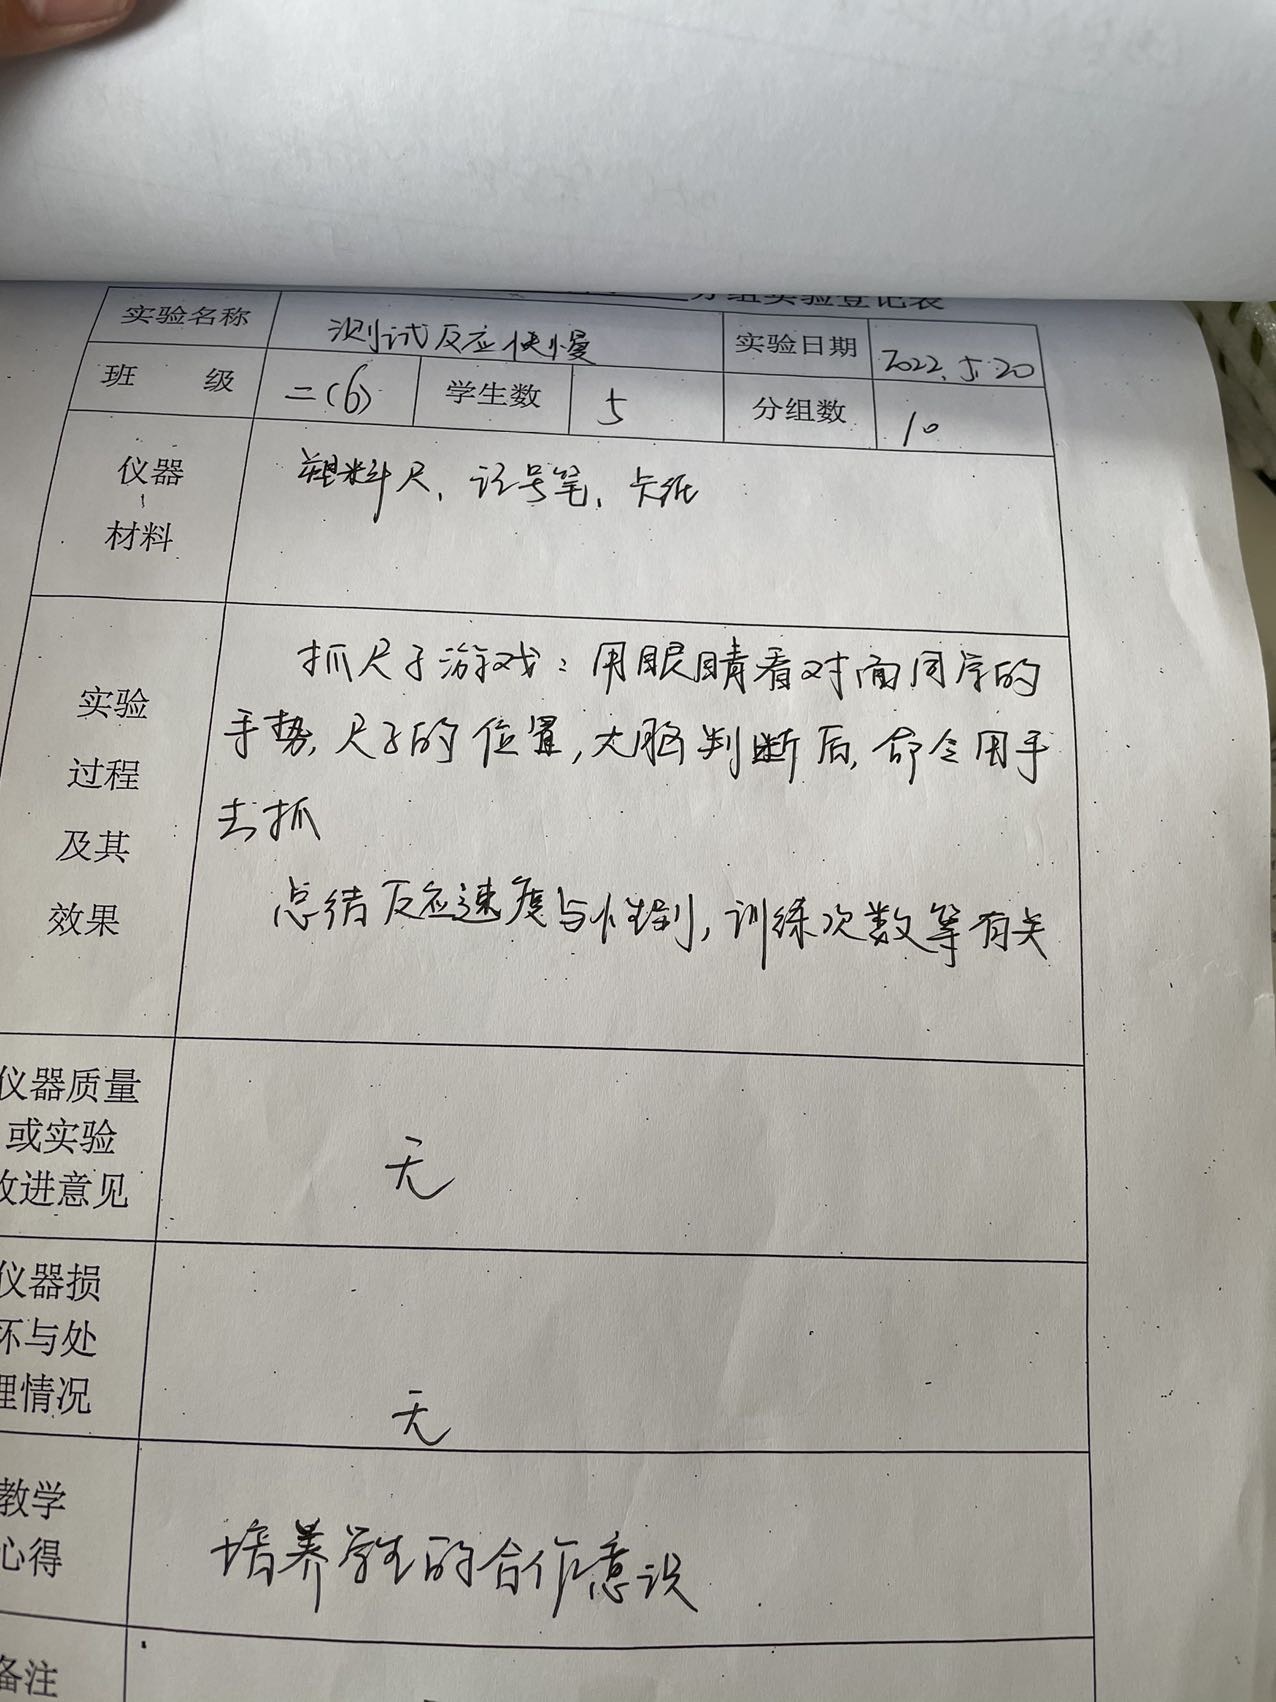 分组实验登记表
实验名称 测试反应快慢 实验日期 2022.5.20
班 级 二(6) 学生数 5 分组数 10
仪器
、
材料
塑料尺、记号笔、卡纸
实验
过程
及其
效果
抓尺子游戏：用眼睛看对面同学的
手势,尺子的位置,大脑判断后,命令用手
去抓
总结反应速度与性别,训练次数等有关
仪器质量
或实验
改进意见
无
仪器损
坏与处
理情况
无
教学
心得
培养学生的合作意识
备注